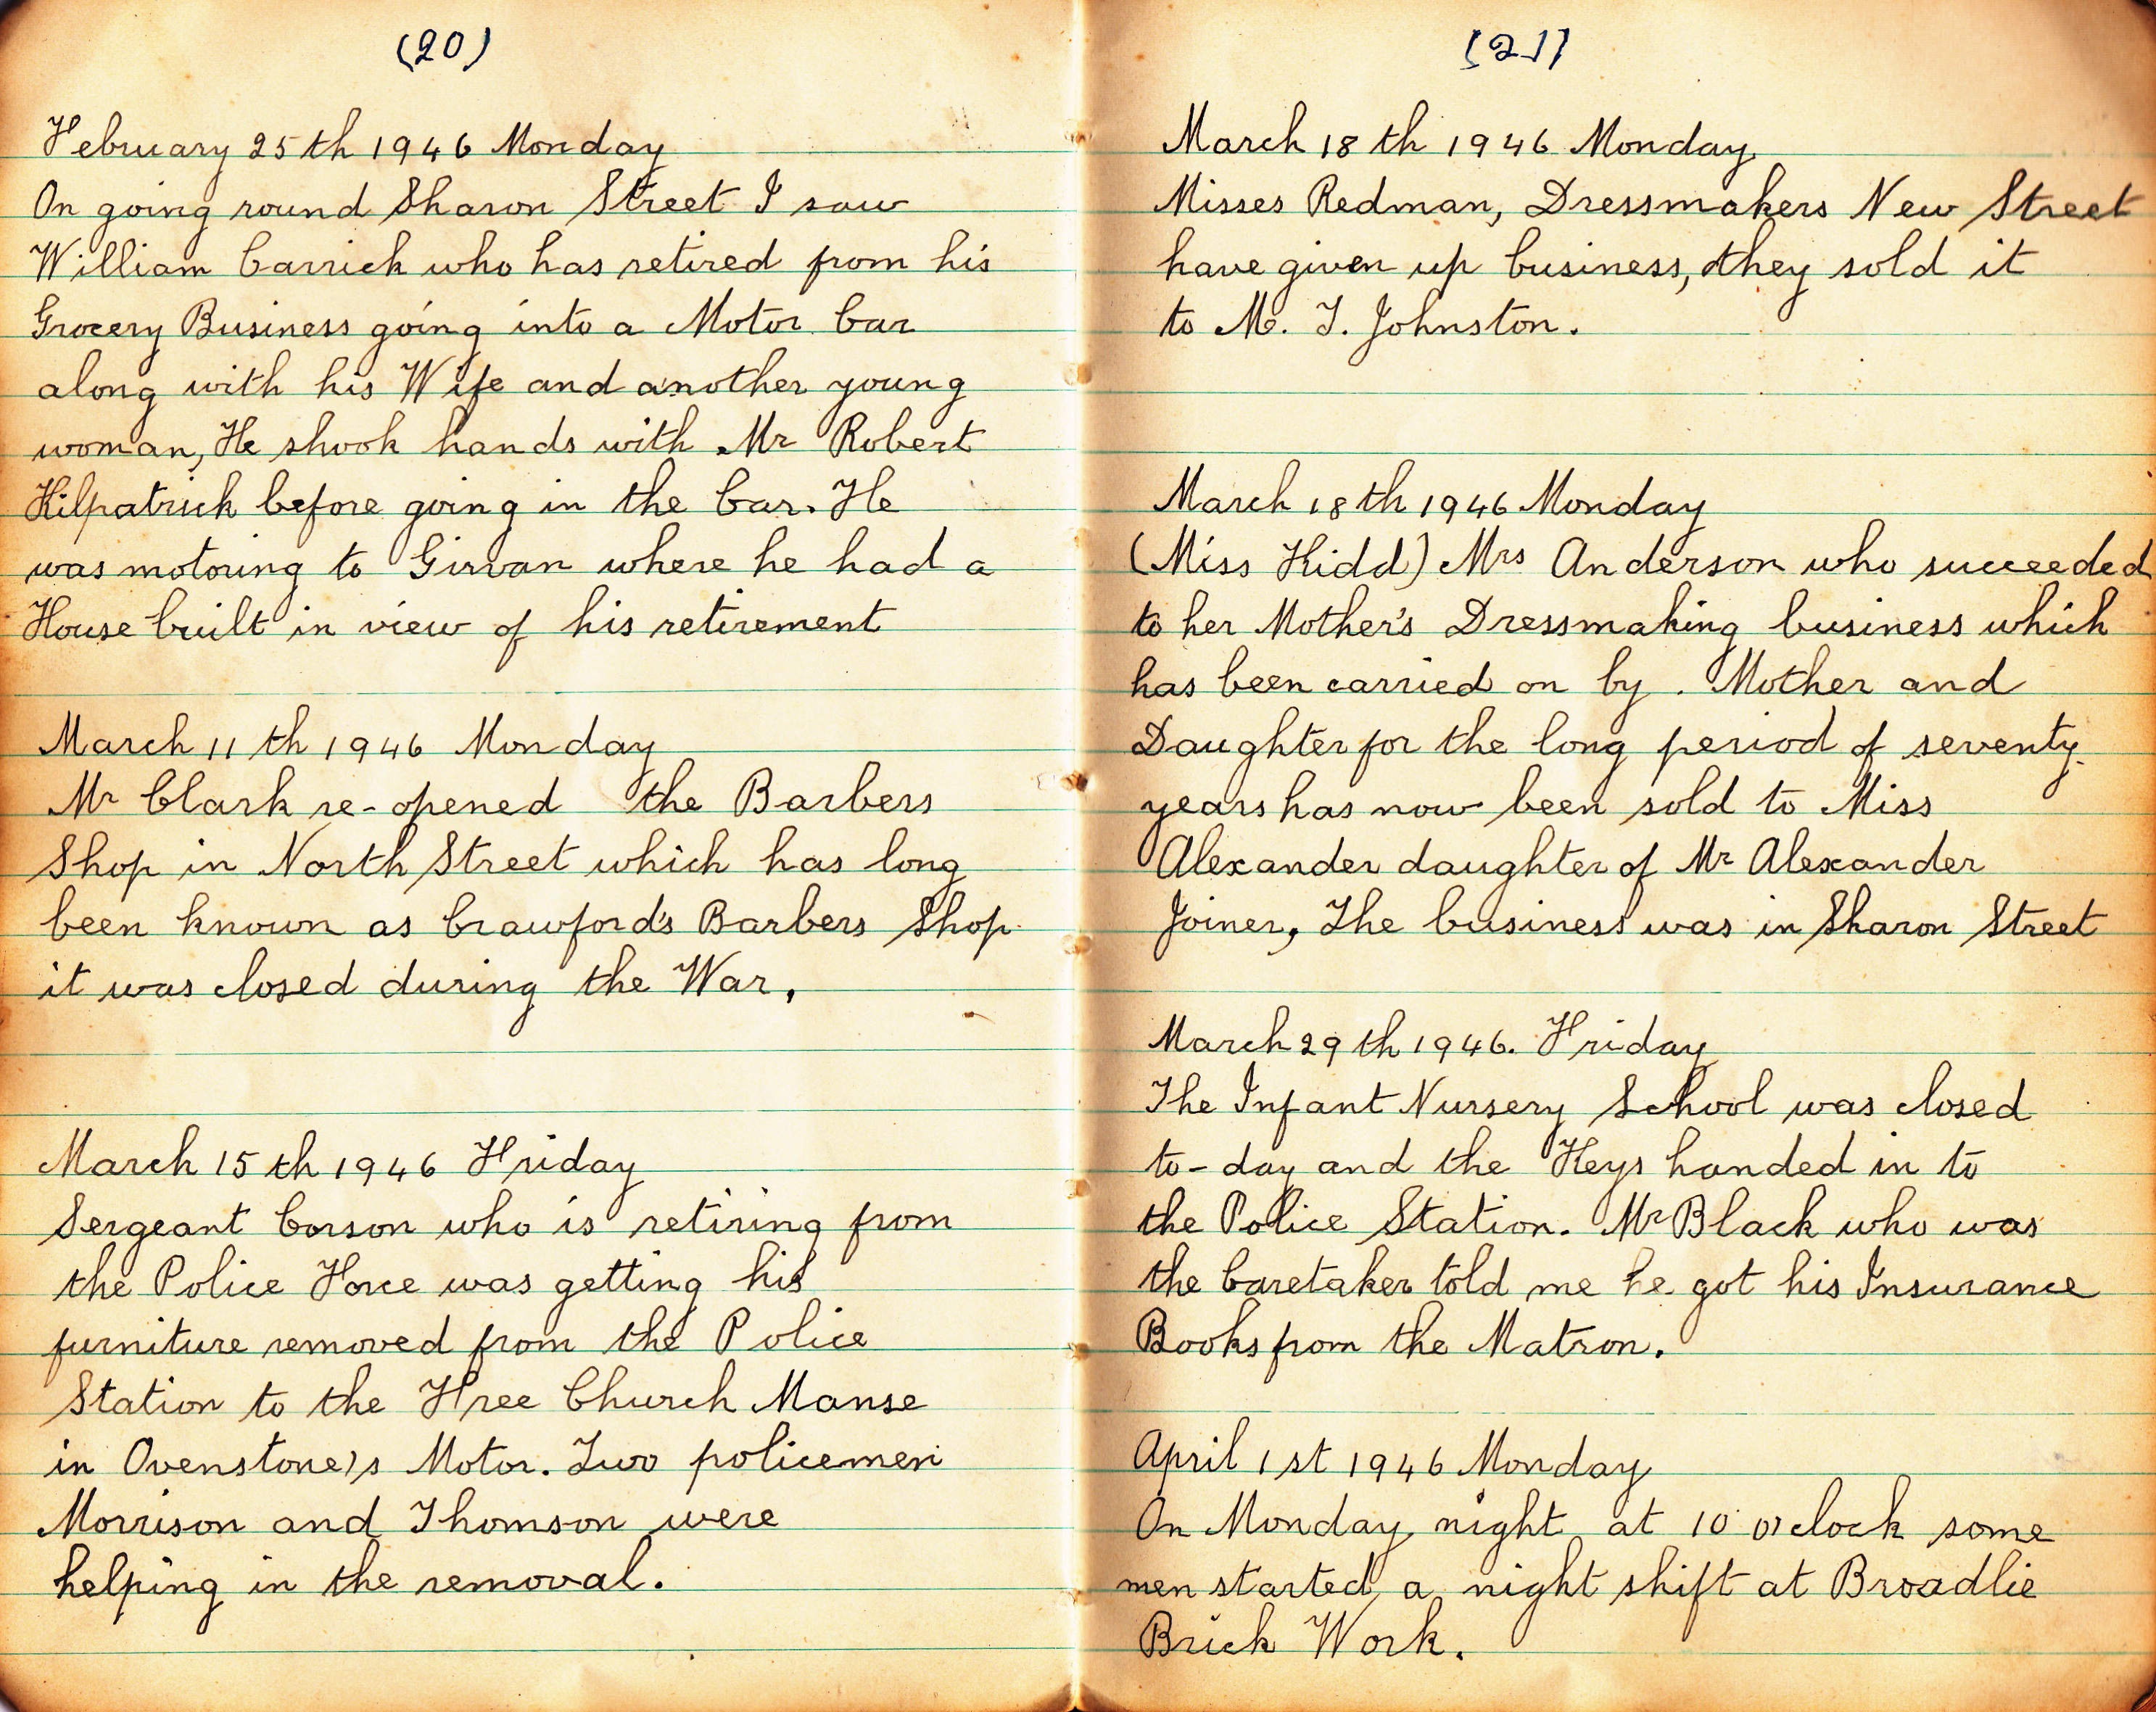 (20)
February 25th 1946 Monday
On going round Sharon Street I saw
William Carrick who has retired from his
Grocery Business going into a Motor Car
along with his Wife and another young
woman, He shook hands with Mr Robert
Kilpatrick before going in the Car. He
was motoring to Girvan where he had a
House built in view of his retirement
March 11th 1946 Monday
Mr Clark re-opened the Barbers
Shop in North Street which has long
been known as Crawford's Barbers Shop
it was closed during the War.
March 15th 1946 Friday
Sergeant Corson who is retiring from
the Police Force was getting his
furniture removed from the Police
Station to the Free Church Manse
in Ovenstone's Motor. Two policemen
Morrison and Thomson were
helping in the removal.
(21)
March 18th 1946 Monday
Misses Redman, Dressmakers New Street
have given up business, they sold it
to M. T. Johnston.
March 18th 1946 Monday
(Miss Kidd) Mrs Anderson who succeeded
to her Mother's Dressmaking business which
has been carried on by. Mother and
Daughter for the long period of seventy
years has now been sold to Miss
Alexander daughter of Mr Alexander
Joiner, The business was in Sharon Street
March 29th 1946. Friday
The Infant Nursery School was closed
to-day and the Keys handed in to
the Police Station. Mr Black who was
the Caretaker told me he got his Insurance
Books from the Matron.
April 1st 1946 Monday
On Monday night at 10 o'clock some
men started a night shift at Broadlie
Brick Work.